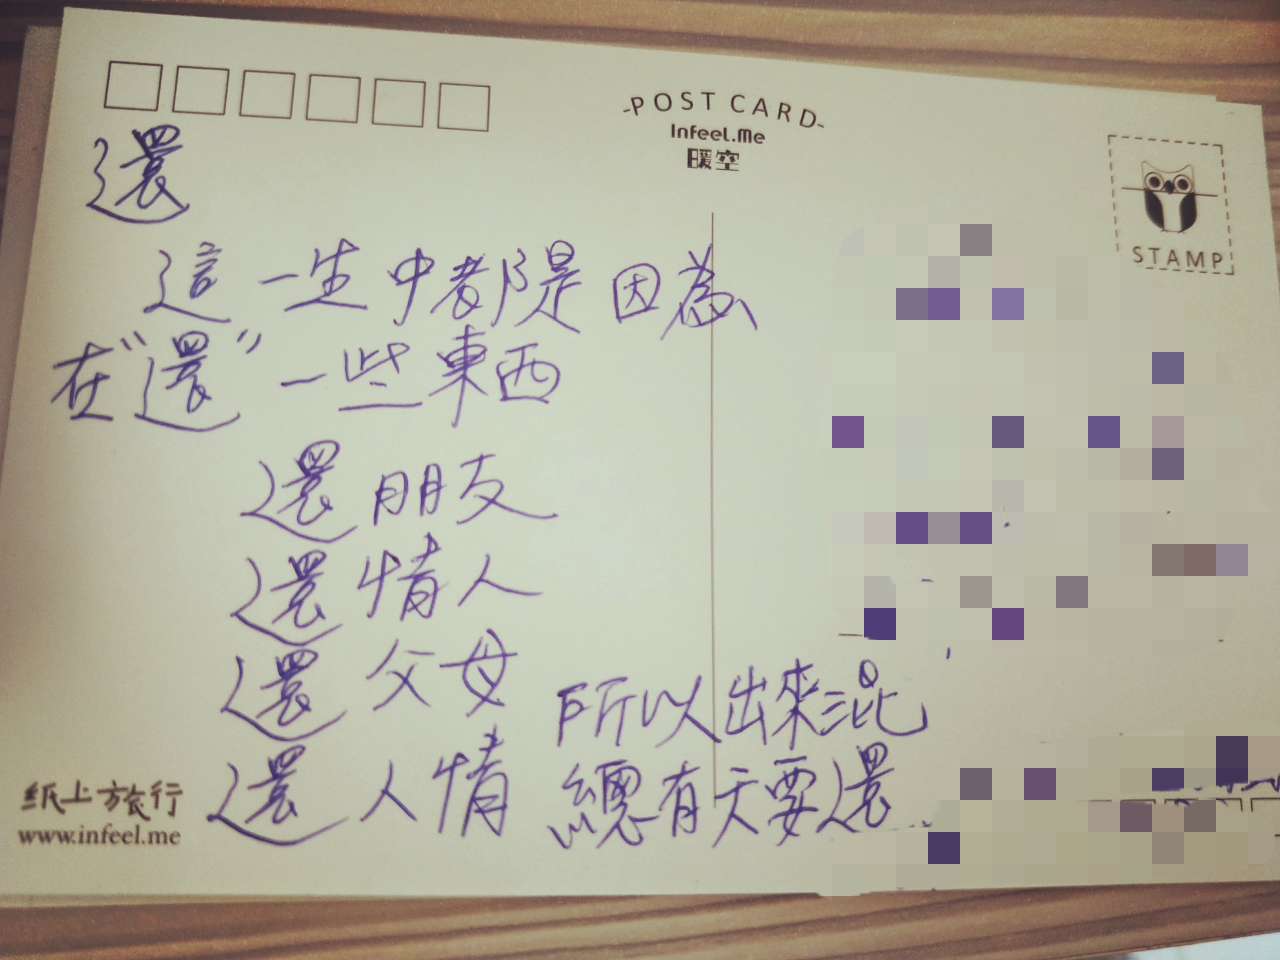 POST CARD
Infeel.Me
暖空
STAMP
還
這一生中都是因為
在"還"一些東西
還朋友
還情人
還父母
還人情
所以出來混
總有天要還
纸上旅行
www.infeel.me